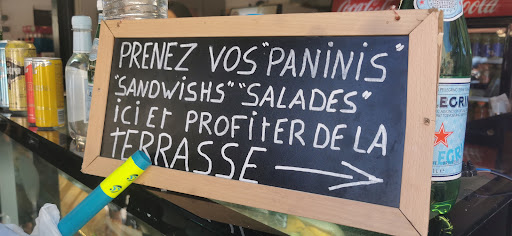 PRENEZ VOS "PANINIS"
"SANDWISHS" "SALADES"
ici Et PROFItER DE LA
tERRASSE →
Coca-Cola